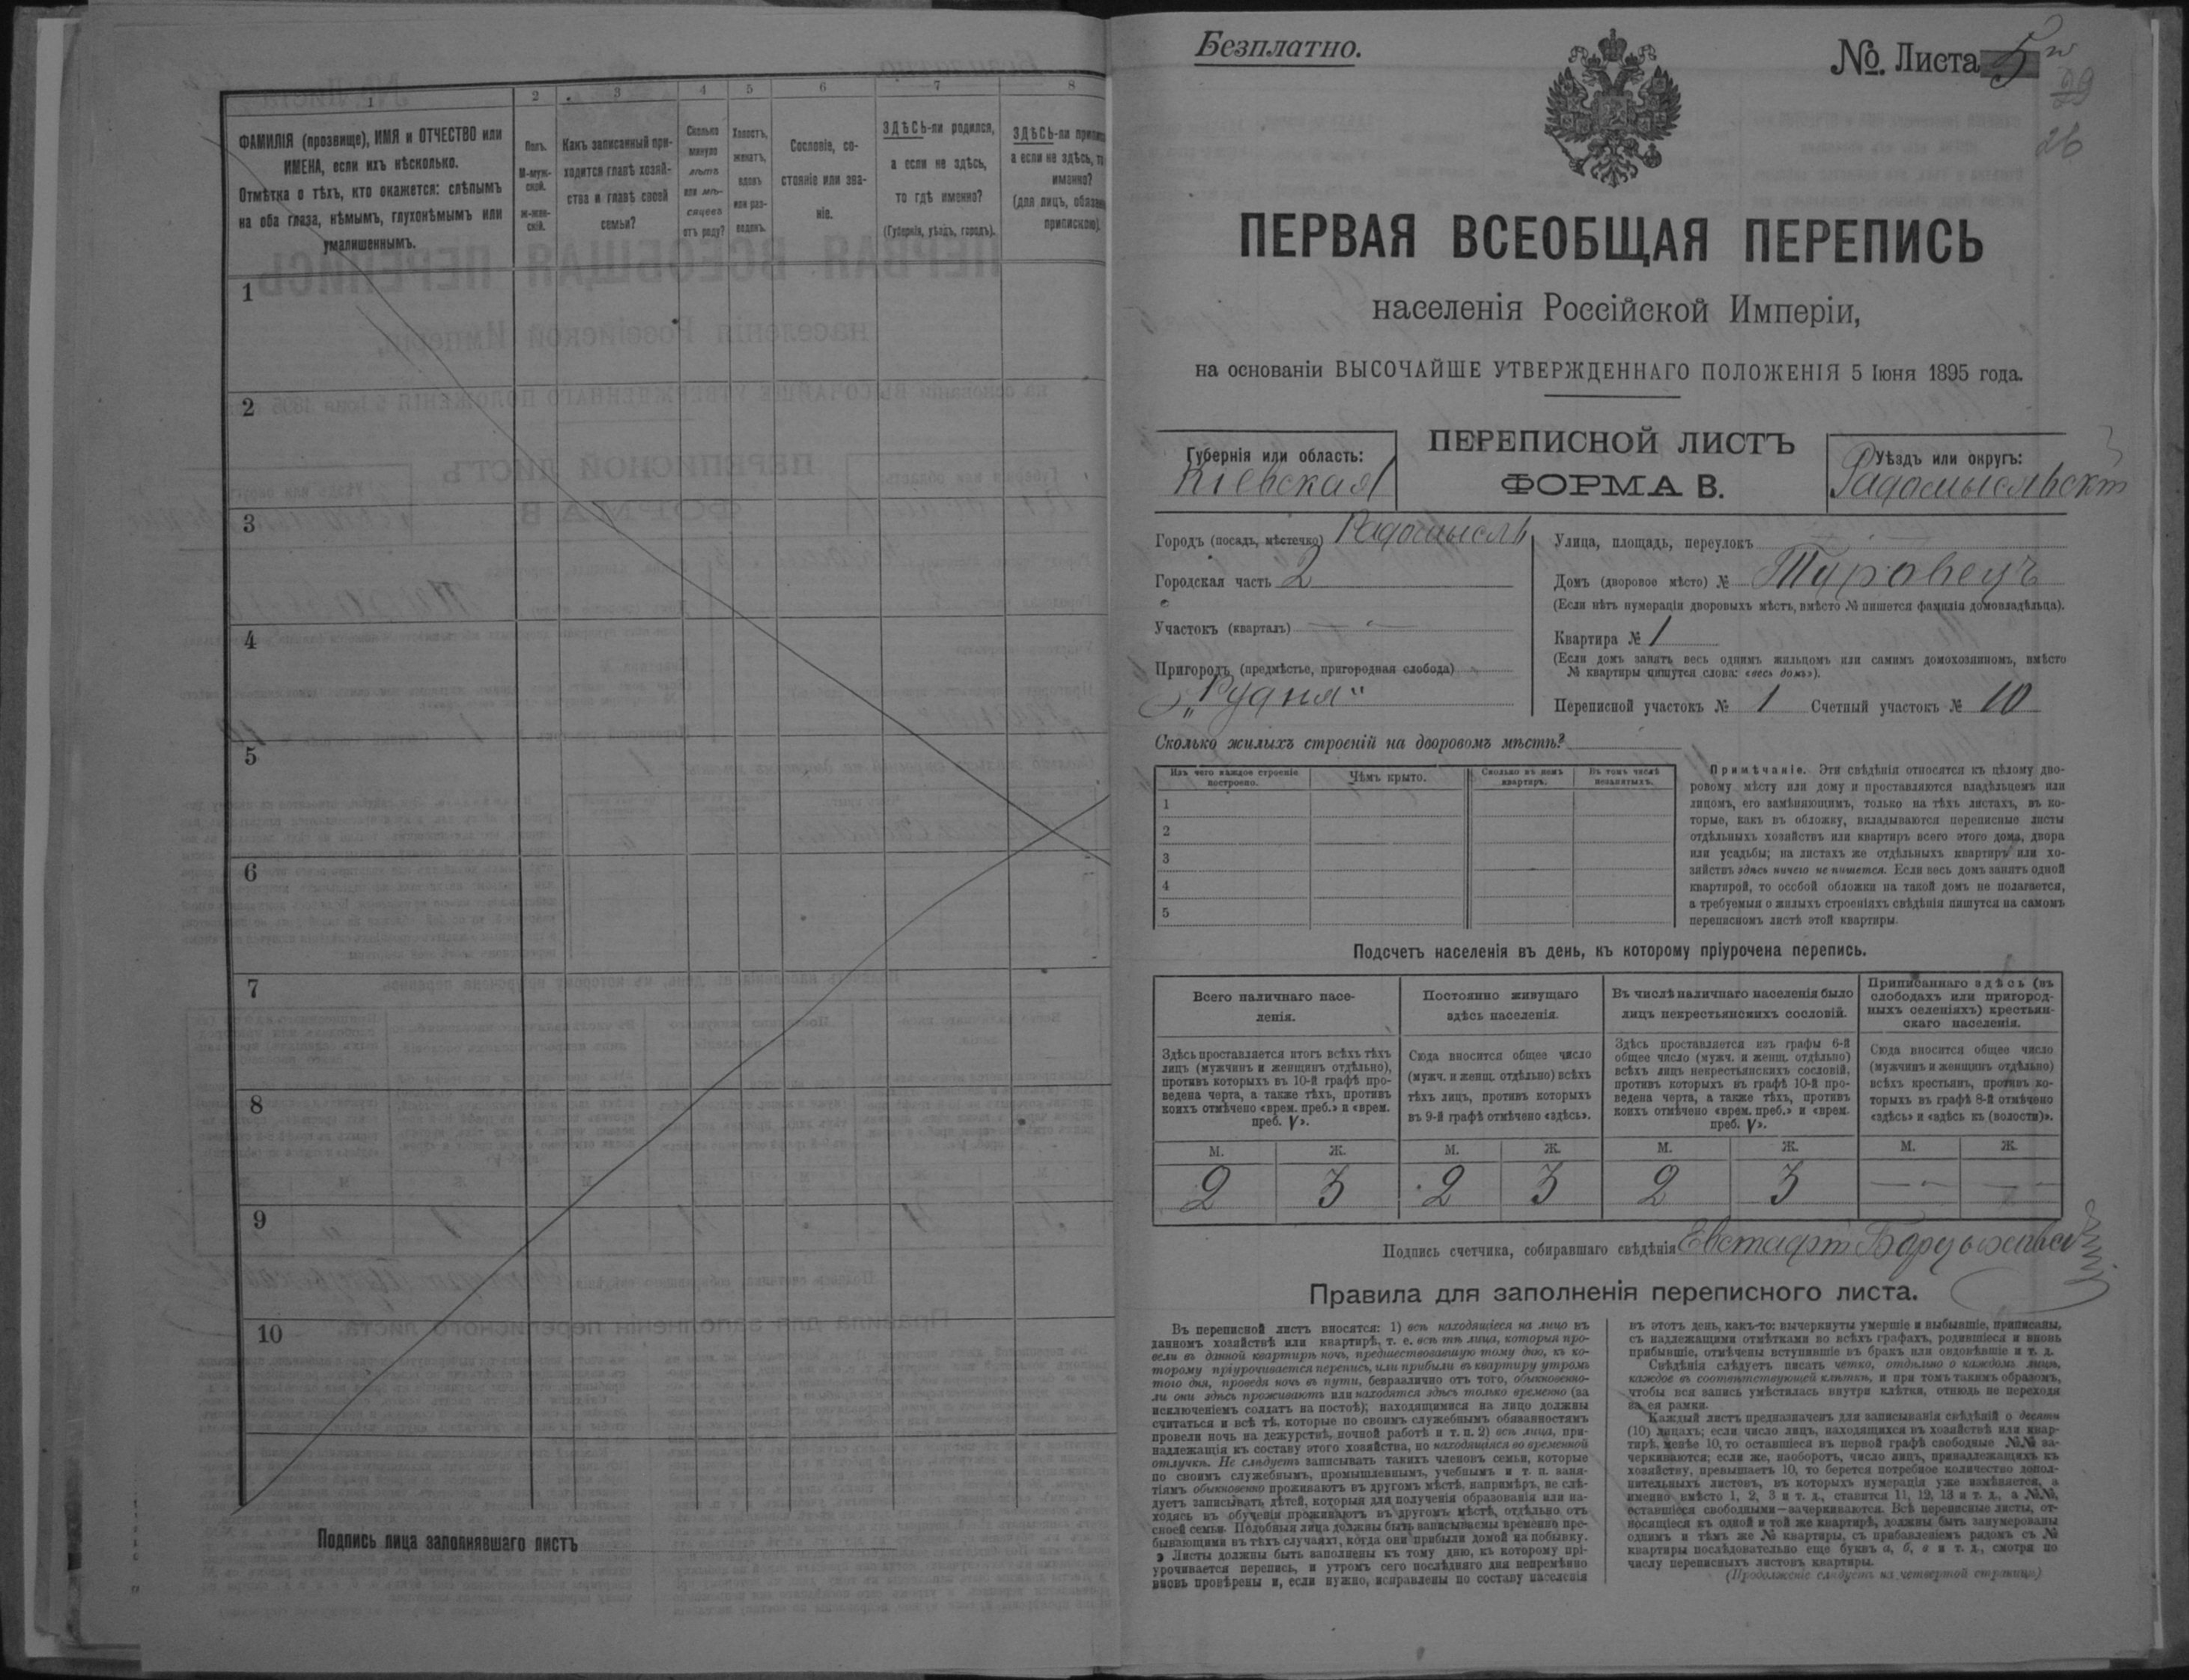 1 2 3 4 5 6 7 8
ФАМИЛІЯ (прозвище), ИМЯ и ОТЧЕСТВО или
ИМЕНА, если ихъ нѣсколько.
Отмѣтка о тѣхъ, кто окажется: слѣпымъ
на оба глаза, нѣмымъ, глухонѣмымъ или
умалишеннымъ.
Полъ.
М-муж-
ской.
Ж-жен-
скій.
Какъ записанный при-
ходится главѣ хозяй-
ства и главѣ своей
семьи?
Сколько
минуло
лѣтъ
или мѣ-
сяцевъ
отъ роду?
Холостъ,
женатъ,
вдовъ
или раз-
веденъ.
Сословіе, со-
стояніе или зва-
ніе.
ЗДѢСЬ-ли родился,
а если не здѣсь,
то гдѣ именно?
(Губернія, уѣздъ, городъ).
ЗДѢСЬ-ли
а если не здѣсь,
именно?
(для лицъ,
припискою).
1
2
3
4
5
6
7
8
9
10
Подпись лица заполнявшаго листъ
Безплатно.
№ Листа 5
29
26
ПЕРВАЯ ВСЕОБЩАЯ ПЕРЕПИСЬ
населенія Россійской Имперіи,
на основаніи ВЫСОЧАЙШЕ УТВЕРЖДЕННАГО ПОЛОЖЕНІЯ 5 Іюня 1895 года.
Губернія или область:
Кіевская
ПЕРЕПИСНОЙ ЛИСТЪ
ФОРМА В.
Уѣздъ или округъ:
Радомысльскій
Городъ (посадъ, мѣстечко) Радомысль
Городская часть 2
Участокъ (кварталъ)
Пригородъ (предмѣстье, пригородная слобода)
„Рудня"
Улица, площадь, переулокъ
Домъ (дворовое мѣсто) № Туровецъ
(Если нѣтъ нумераціи дворовыхъ мѣстъ, вмѣсто № пишется фамилія домовладѣльца).
Квартира № 1
(Если домъ занятъ весь однимъ жильцомъ или самимъ домохозяиномъ, вмѣсто
№ квартиры пишутся слова: «весь домъ»).
Переписной участокъ № 1 Счетный участокъ № 10
Сколько жилыхъ строеній на дворовомъ мѣстѣ?
Изъ чего каждое строеніе
построено.
Чѣмъ крыто.
Сколько въ немъ
квартиръ.
Въ томъ числѣ
незанятыхъ.
1
2
3
4
5
Примѣчаніе. Эти свѣдѣнія относятся къ цѣлому дво-
ровому мѣсту или дому и проставляются владѣльцемъ или
лицомъ, его замѣняющимъ, только на тѣхъ листахъ, въ ко-
торые, какъ въ обложку, вкладываются переписные листы
отдѣльныхъ хозяйствъ или квартиръ всего этого дома, двора
или усадьбы; на листахъ же отдѣльныхъ квартиръ или хо-
зяйствъ здѣсь ничего не пишется. Если весь домъ занятъ одной
квартирой, то особой обложки на такой домъ не полагается,
а требуемыя о жилыхъ строеніяхъ свѣдѣнія пишутся на самомъ
переписномъ листѣ этой квартиры.
Подсчетъ населенія въ день, къ которому пріурочена перепись.
Всего наличнаго насе-
ленія.
Постоянно живущаго
здѣсь населенія.
Въ числѣ наличнаго населенія было
лицъ некрестьянскихъ сословій.
Приписаннаго здѣсь (въ
слободахъ или пригород-
ныхъ селеніяхъ) крестьян-
скаго населенія.
Здѣсь проставляется итогъ всѣхъ тѣхъ
лицъ (мужчинъ и женщинъ отдѣльно),
противъ которыхъ въ 10-й графѣ про-
ведена черта, а также тѣхъ, противъ
коихъ отмѣчено «врем. преб.» и «врем.
преб. V».
Сюда вносится общее число
(мужч. и женщ. отдѣльно) всѣхъ
тѣхъ лицъ, противъ которыхъ
въ 9-й графѣ отмѣчено «здѣсь».
Здѣсь проставляется изъ графы 6-й
общее число (мужч. и женщ. отдѣльно)
всѣхъ лицъ некрестьянскихъ сословій,
противъ которыхъ въ графѣ 10-й про-
ведена черта, а также тѣхъ, противъ
коихъ отмѣчено «врем. преб.» и «врем.
преб. V».
Сюда вносится общее число
(мужчинъ и женщинъ отдѣльно)
всѣхъ крестьянъ, противъ ко-
торыхъ въ графѣ 8-й отмѣчено
«здѣсь» и «здѣсь къ (волости)».
М. Ж. М. Ж. М. Ж. М. Ж.
2 3 2 3 2 3
Подпись счетчика, собиравшаго свѣдѣнія Евстафій
Правила для заполненія переписного листа.
Въ переписной листъ вносятся: 1) всѣ находящіеся на лицо въ
данномъ хозяйствѣ или квартирѣ, т. е. всѣ тѣ лица, которыя про-
вели въ данной квартирѣ ночь, предшествовавшую тому дню, къ ко-
торому пріурочивается перепись, или прибыли въ квартиру утромъ
того дня, проведя ночь въ пути, безразлично отъ того, обыкновенно-
ли они здѣсь проживаютъ или находятся здѣсь только временно (за
исключеніемъ солдатъ на постоѣ); находящимися на лицо должны
считаться и всѣ тѣ, которые по своимъ служебнымъ обязанностямъ
провели ночь на дежурствѣ, ночной работѣ и т. п. 2) всѣ лица, при-
надлежащія къ составу этого хозяйства, но находящіяся во временной
отлучкѣ. Не слѣдуетъ записывать такихъ членовъ семьи, которые
по своимъ служебнымъ, промышленнымъ, учебнымъ и т. п. заня-
тіямъ обыкновенно проживаютъ въ другомъ мѣстѣ, напримѣръ, не слѣ-
дуетъ записывать дѣтей, которыя для полученія образованія или на-
ходясь въ обученіи проживаютъ въ другомъ мѣстѣ, отдѣльно отъ
своей семьи. Подобныя лица должны быть записываемы временно пре-
бывающими въ тѣхъ случаяхъ, когда они прибыли домой на побывку.
Листы должны быть заполнены къ тому дню, къ которому прі-
урочивается перепись, и утромъ сего послѣдняго дня непремѣнно
вновь провѣрены и, если нужно, исправлены по составу населенія
въ этотъ день, какъ-то: вычеркнуты умершіе и выбывшіе, приписаны,
съ надлежащими отмѣтками во всѣхъ графахъ, родившіеся и вновь
прибывшіе, отмѣчены вступившіе въ бракъ или овдовѣвшіе и т. д.
Свѣдѣнія слѣдуетъ писать четко, отдѣльно о каждомъ лицѣ,
каждое въ соотвѣтствующей клѣткѣ, и при томъ такимъ образомъ,
чтобы вся запись умѣстилась внутри клѣтки, отнюдь не переходя
за ея рамки.
Каждый листъ предназначенъ для записыванія свѣдѣній о десяти
(10) лицахъ; если число лицъ, находящихся въ хозяйствѣ или квар-
тирѣ, менѣе 10, то оставшіеся въ первой графѣ свободные №№ за-
черкиваются; если же, наоборотъ, число лицъ, принадлежащихъ къ
хозяйству, превышаетъ 10, то берется потребное количество допол-
нительныхъ листовъ, въ которыхъ нумерація уже измѣняется, а
именно вмѣсто 1, 2, 3 и т. д., ставится 11, 12, 13 и т. д., а №№,
оставшіеся свободными—зачеркиваются. Всѣ переписные листы, от-
носящіеся къ одной и той же квартирѣ, должны быть занумерованы
однимъ и тѣмъ же № квартиры, съ прибавленіемъ рядомъ съ №
квартиры послѣдовательно еще буквъ а, б, в и т. д., смотря по
числу переписныхъ листовъ квартиры.
(Продолженіе слѣдуетъ на четвертой страницѣ)